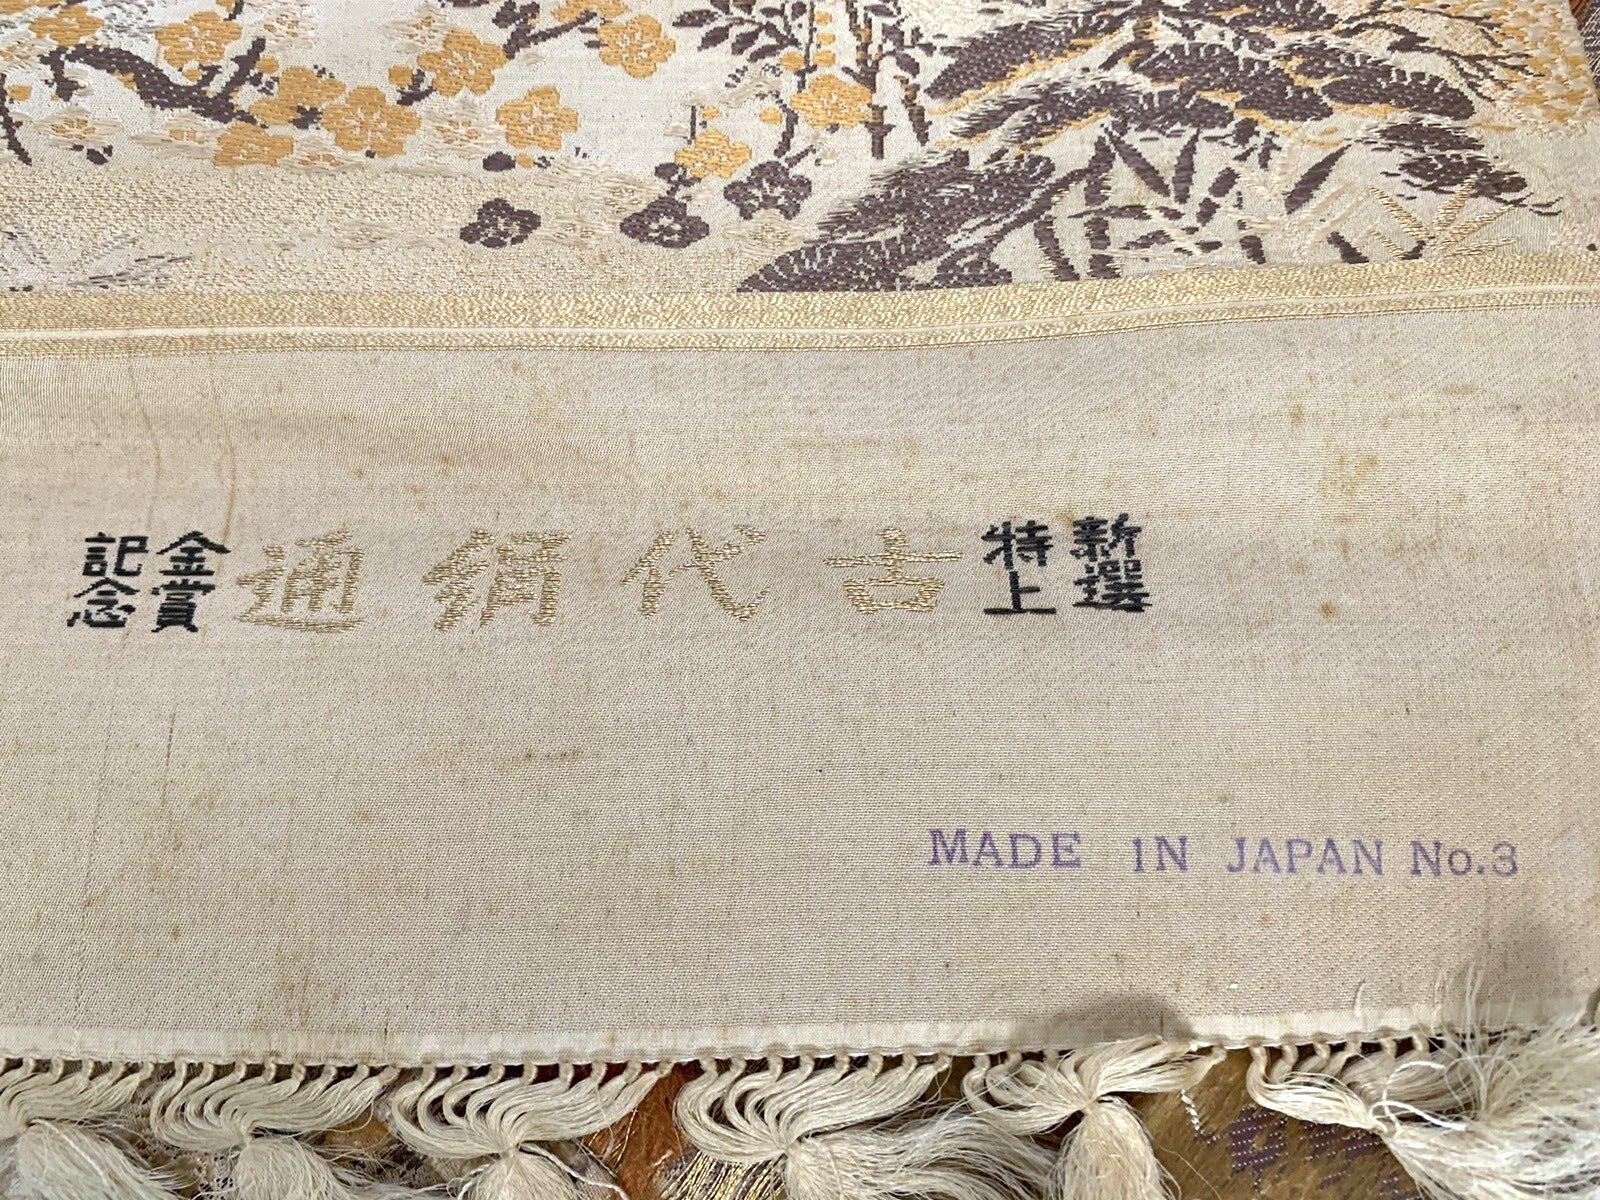 新選
特上
古代絹通
金賞
記念
MADE IN JAPAN No.3